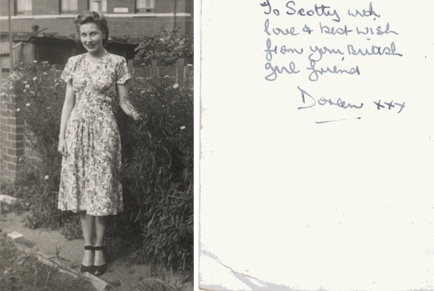 To Scotty with
love & best wish
from your British
girl friend
Doreen xxx